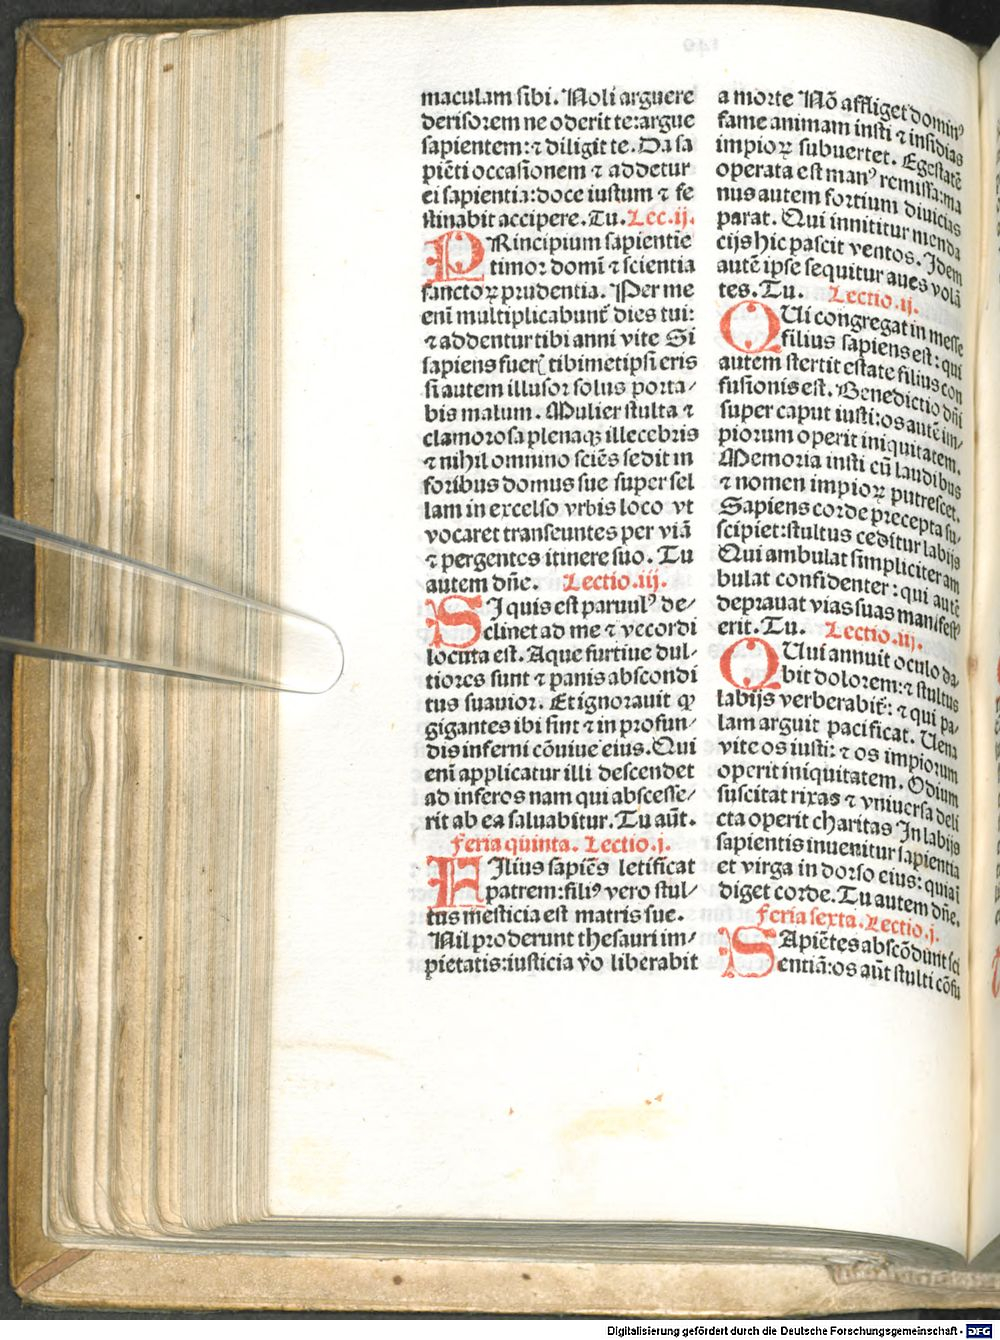 maculam sibi. Noli arguere
derisorem ne oderit te: argue
sapientem: ⁊ diligit te. Da sa
piēti occasionem ⁊ addetur
ei sapientia: doce iustum ⁊ fe
stinabit accipere. Tu. Lec. ij.
PRincipium sapientie
timor domī ⁊ scientia
sanctoꝝ prudentia. Per me
enī multiplicabunt᷑ dies tui:
⁊ addentur tibi anni vite Si
sapiens fuer̄ tibimetipsi eris
si autem illusor solus porta⸗
bis malum. Mulier stulta ⁊
clamorosa plenaqꝫ illecebris
⁊ nihil omnino sciēs sedit in
foribus domus sue super sel
lam in excelso vrbis loco vt
vocaret transeuntes per viā
⁊ pergentes itinere suo. Tu
autem dn̄e. Lectio. iij.
SJ quis est paruulꝰ de⸗
clinet ad me ⁊ vecordi
locuta est. Aque furtiue dul⸗
tiores sunt ⁊ panis abscondi
tus suauior. Et ignorauit ꝙ
gigantes ibi sint ⁊ in profun⸗
dis inferni cōuiue eius. Qui
enī applicatur illi descendet
ad inferos nam qui abscesse⸗
rit ab ea saluabitur. Tu aūt.
feria quinta. Lectio. j.
FJlius sapiēs letificat
patrem: filiꝰ vero stul⸗
tus mesticia est matris sue.
Nil proderunt thesauri im⸗
pietatis: iusticia v̄o liberabit
a morte Nō affliget dominꝰ
fame animam iusti ⁊ insidias
impioꝝ subuertet. Egestatē
operata est manꝰ remissa: ma
nus autem fortium diuicias
parat. Qui innititur menda
cijs hic pascit ventos. Jdem
autē ipse sequitur aues volā
tes. Tu. Lectio. ij.
QUi congregat in messe
filius sapiens est: qui
autem stertit estate filius con
fusionis est. Benedictio dn̄i
super caput iusti: os autē im⸗
piorum operit iniquitatem.
Memoria iusti cū laudibus
⁊ nomen impioꝝ putrescet.
Sapiens corde precepta su⸗
scipiet: stultus ceditur labijs
Qui ambulat simpliciter am
bulat confidenter: qui autē
deprauat vias suas manifestꝰ
erit. Tu. Lectio. iij.
QUi annuit oculo da⸗
bit dolorem: ⁊ stultus
labijs verberabit᷑: ⁊ qui pa⸗
lam arguit pacificat. Uena
vite os iusti: ⁊ os impiorum
operit iniquitatem. Odium
suscitat rixas ⁊ vniuersa deli
cta operit charitas Jn labijs
sapientis inuenitur sapientia
et virga in dorso eius: qui aī
diget corde. Tu autem dn̄e.
feria sexta. Lectio. j.
SApiētes abscōdunt sci
entiā: os aūt stulti cōfu
Digitalisierung gefördert durch die Deutsche Forschungsgemeinschaft - DFG